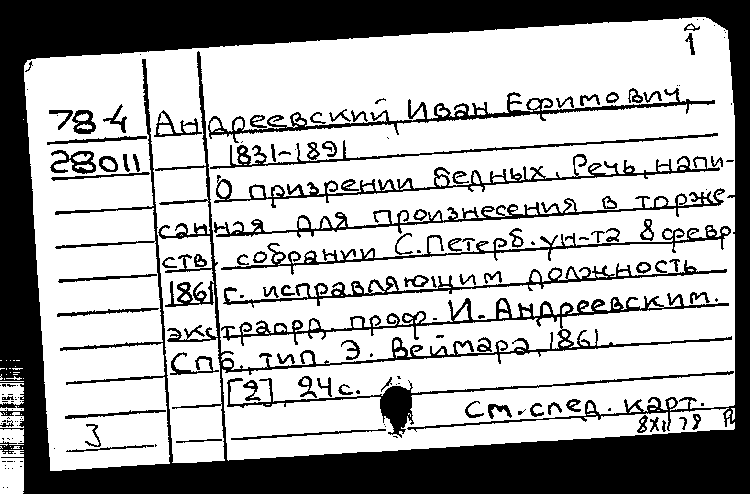 1
78-4 Андреевский, Иван Ефимович,
28011 1831-1891
О призрении бедных. Речь, напи-
санная для произнесения в торже-
ств. собрании С.Петерб. ун-та 8 февр.
1861 г., исправляющим должность
экстраорд. проф. И. Андреевским.
Спб., тип. Э. Веймара, 1861.
[2], 24 с.
См. след. карт.
3 8XII 78